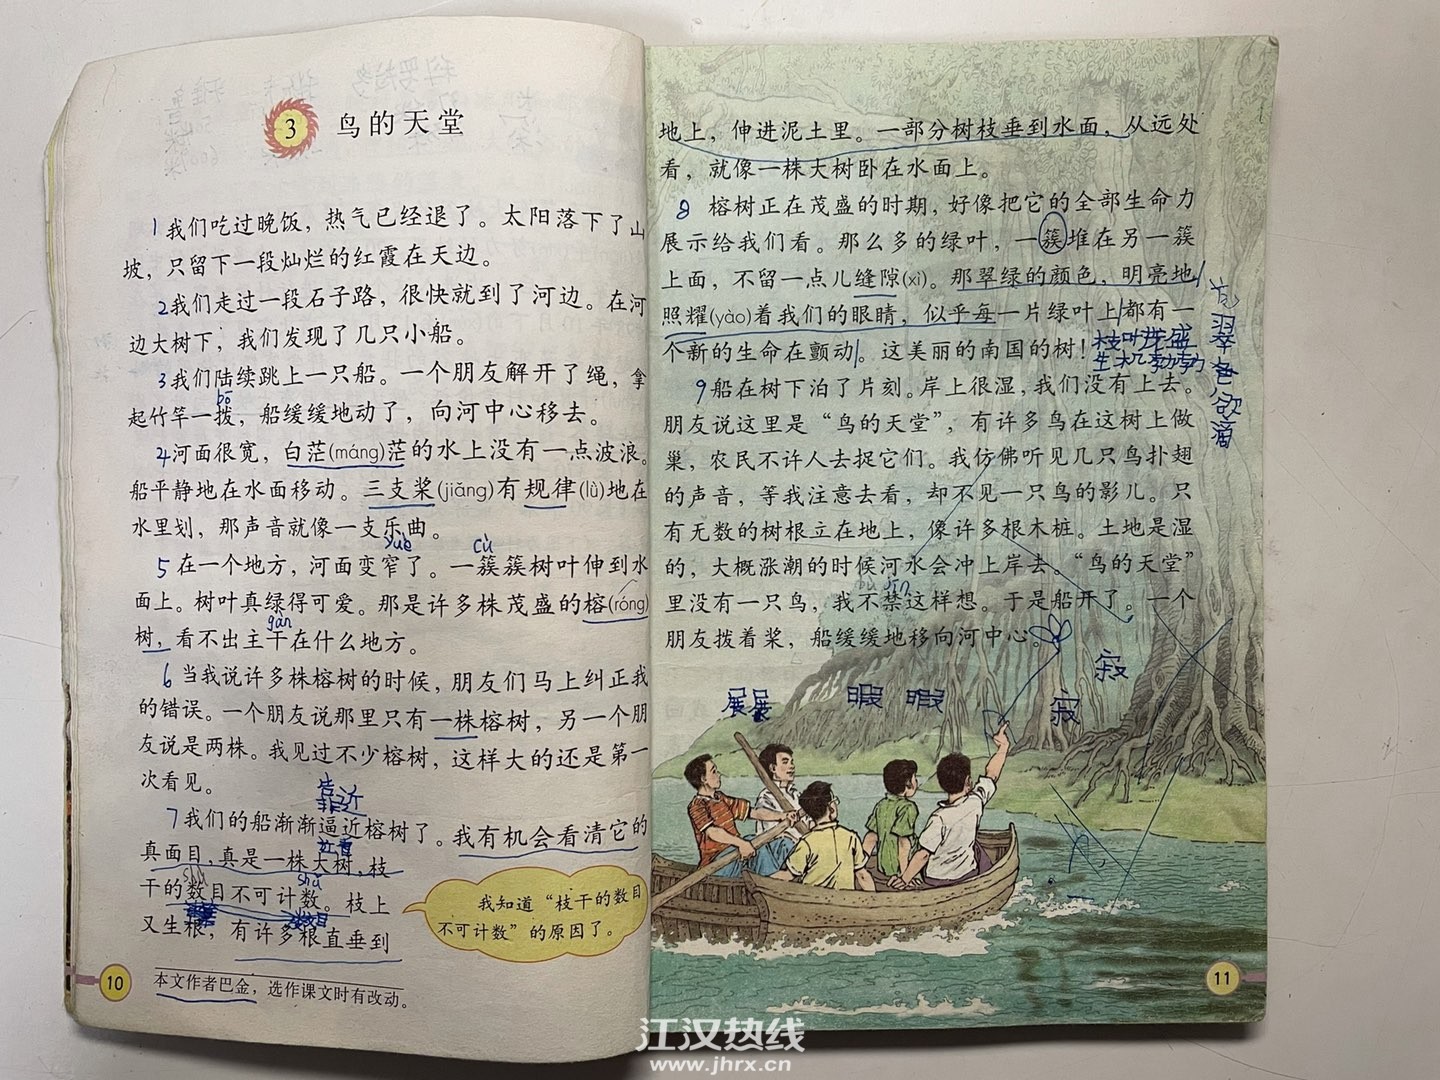 3 鸟的天堂
1我们吃过晚饭，热气已经退了。太阳落下了山
坡，只留下一段灿烂的红霞在天边。
2我们走过一段石子路，很快就到了河边。在河
边大树下，我们发现了几只小船。
3我们陆续跳上一只船。一个朋友解开了绳，拿
bō
起竹竿一拨，船缓缓地动了，向河中心移去。
4河面很宽，白茫(máng)茫的水上没有一点波浪。
船平静地在水面移动。三支桨(jiǎng)有规律(lǜ)地在
水里划，那声音就像一支乐曲。
yuè cù
5在一个地方，河面变窄了。一簇簇树叶伸到水
面上。树叶真绿得可爱。那是许多株茂盛的榕(róng)
gàn
树，看不出主干在什么地方。
6当我说许多株榕树的时候，朋友们马上纠正我
的错误。一个朋友说那里只有一株榕树，另一个朋
友说是两株。我见过不少榕树，这样大的还是第一
次看见。
靠近
7我们的船渐渐逼近榕树了。我有机会看清它的
真面目，真是一株大树，枝
shǔ
干的数目不可计数。枝上
又生根，有许多根直垂到
我知道“枝干的数目
不可计数”的原因了。
本文作者巴金，选作课文时有改动。
10
地上，伸进泥土里。一部分树枝垂到水面，从远处
看，就像一株大树卧在水面上。
8 榕树正在茂盛的时期，好像把它的全部生命力
展示给我们看。那么多的绿叶，一簇堆在另一簇
上面，不留一点儿缝隙(xì)。那翠绿的颜色，明亮地
照耀(yào)着我们的眼睛，似乎每一片绿叶上都有一
个新的生命在颤动。这美丽的南国的树！
枝叶茂盛
生机勃勃
翠色欲滴
9船在树下泊了片刻。岸上很湿，我们没有上去。
朋友说这里是“鸟的天堂”，有许多鸟在这树上做
巢，农民不许人去捉它们。我仿佛听见几只鸟扑翅
的声音，等我注意去看，却不见一只鸟的影儿。只
有无数的树根立在地上，像许多根木桩。土地是湿
的，大概涨潮的时候河水会冲上岸去。“鸟的天堂”
jīn
里没有一只鸟，我不禁这样想。于是船开了。一个
朋友拨着桨，船缓缓地移向河中心。
展展 暇暇 寂 寂
11
江汉热线
www.jhrx.cn